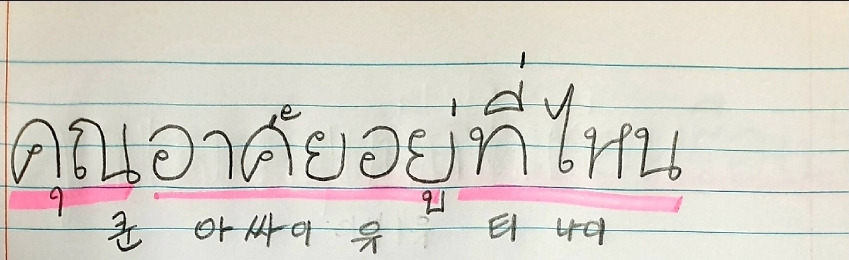 คุณอาศัยอยู่ที่ไหน
쿤 아싸이 유 티 나이